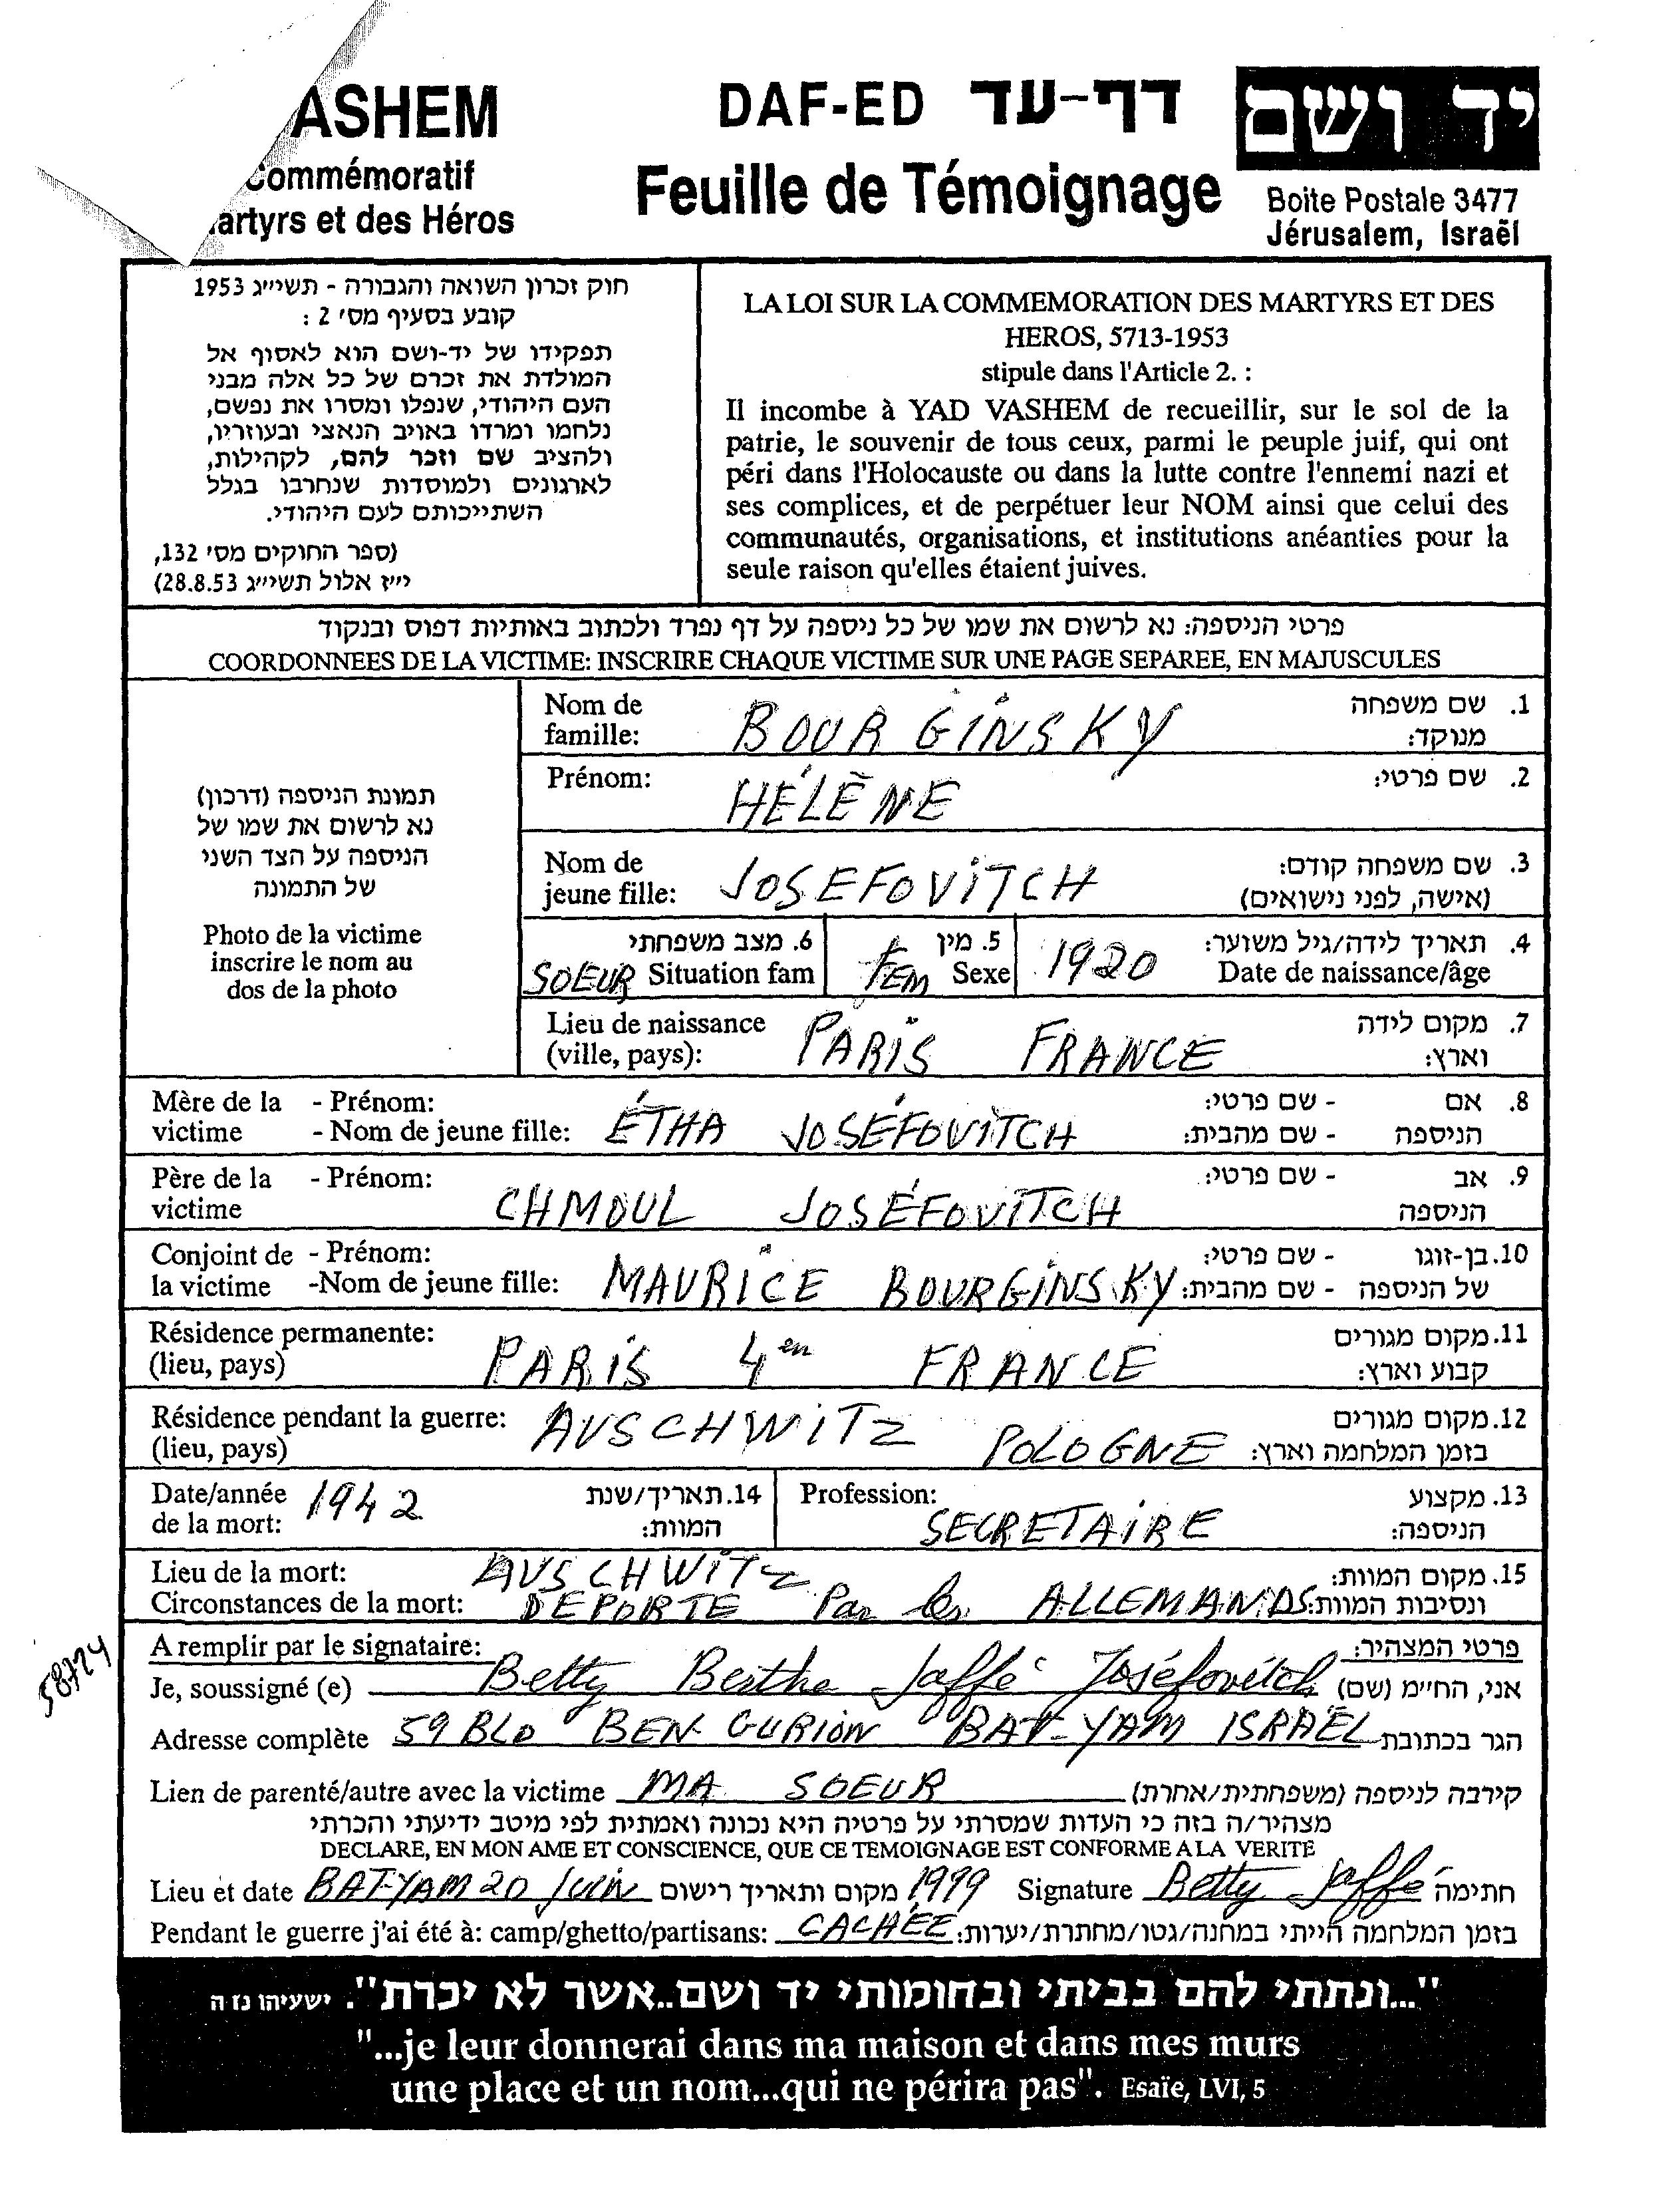 ASHEM
Commémoratif
artyrs et des Héros
DAF-ED דף-עד
Feuille de Témoignage
יד ושם
Boite Postale 3477
Jérusalem, Israël
חוק זכרון השואה והגבורה - תשי״ג 1953
קובע בסעיף מס׳ 2 :
תפקידו של יד-ושם הוא לאסוף אל
המולדת את זכרם של כל אלה מבני
העם היהודי, שנפלו ומסרו את נפשם,
נלחמו ומרדו באויב הנאצי ובעוזריו,
ולהציב שם וזכר להם, לקהילות,
לארגונים ולמוסדות שנחרבו בגלל
השתייכותם לעם היהודי.
(ספר החוקים מס׳ 132,
י״ז אלול תשי״ג 28.8.53)
LA LOI SUR LA COMMEMORATION DES MARTYRS ET DES
HEROS, 5713-1953
stipule dans l'Article 2. :
Il incombe à YAD VASHEM de recueillir, sur le sol de la
patrie, le souvenir de tous ceux, parmi le peuple juif, qui ont
péri dans l'Holocauste ou dans la lutte contre l'ennemi nazi et
ses complices, et de perpétuer leur NOM ainsi que celui des
communautés, organisations, et institutions anéanties pour la
seule raison qu'elles étaient juives.
פרטי הניספה: נא לרשום את שמו של כל ניספה על דף נפרד ולכתוב באותיות דפוס ובנקוד
COORDONNEES DE LA VICTIME: INSCRIRE CHAQUE VICTIME SUR UNE PAGE SEPAREE, EN MAJUSCULES
תמונת הניספה (דרכון)
נא לרשום את שמו של
הניספה על הצד השני
של התמונה
Photo de la victime
inscrire le nom au
dos de la photo
Nom de famille: BOURGINSKY 1. שם משפחה מנוקד:
Prénom: HÉLÈNE 2. שם פרטי:
Nom de jeune fille: JOSEFOVITCH 3. שם משפחה קודם: (אישה, לפני נישואים)
SOEUR 6. מצב משפחתי Situation fam
FEM 5. מין Sexe
1920 4. תאריך לידה/גיל משוער: Date de naissance/âge
Lieu de naissance (ville, pays): PARIS FRANCE 7. מקום לידה וארץ:
Mère de la victime - Prénom: - Nom de jeune fille: ÉTHA JOSÉFOVITCH 8. אם הניספה - שם פרטי: - שם מהבית:
Père de la victime - Prénom: CHMOUL JOSÉFOVITCH 9. אב הניספה - שם פרטי:
Conjoint de la victime - Prénom: -Nom de jeune fille: MAURICE BOURGINSKY 10. בן-זוגו של הניספה - שם פרטי: - שם מהבית:
Résidence permanente: (lieu, pays) PARIS 4en FRANCE 11. מקום מגורים קבוע וארץ:
Résidence pendant la guerre: (lieu, pays) AUSCHWITZ POLOGNE 12. מקום מגורים בזמן המלחמה וארץ:
Date/année de la mort: 1942 14. תאריך/שנת המוות:
Profession: SECRETAIRE 13. מקצוע הניספה:
Lieu de la mort: AUSCHWITZ 15. מקום המוות:
Circonstances de la mort: DEPORTE Par les ALLEMANDS ונסיבות המוות:
58724
A remplir par le signataire: פרטי המצהיר:
Je, soussigné (e) Betty Berthe Jaffé Joséfovitch אני, החיימ (שם)
Adresse complète 59 BLD BEN-GURION BAT-YAM ISRAËL הגר בכתובת
Lien de parenté/autre avec la victime MA SOEUR קירבה לניספה (משפחתית/אחרת)
מצהיר/ה בזה כי העדות שמסרתי על פרטיה היא נכונה ואמתית לפי מיטב ידיעתי והכרתי
DECLARE, EN MON AME ET CONSCIENCE, QUE CE TEMOIGNAGE EST CONFORME A LA VERITE
Lieu et date BAT-YAM 20 Juin 1999 מקום ותאריך רישום Signature Betty Jaffé חתימה
Pendant le guerre j'ai été à: camp/ghetto/partisans: CACHÉE בזמן המלחמה הייתי במחנה/גטו/מחתרת/יערות:
"...ונתתי להם בביתי ובחומותי יד ושם..אשר לא יכרת". ישעיהו נז ה
"...je leur donnerai dans ma maison et dans mes murs
une place et un nom...qui ne périra pas". Esaïe, LVI, 5